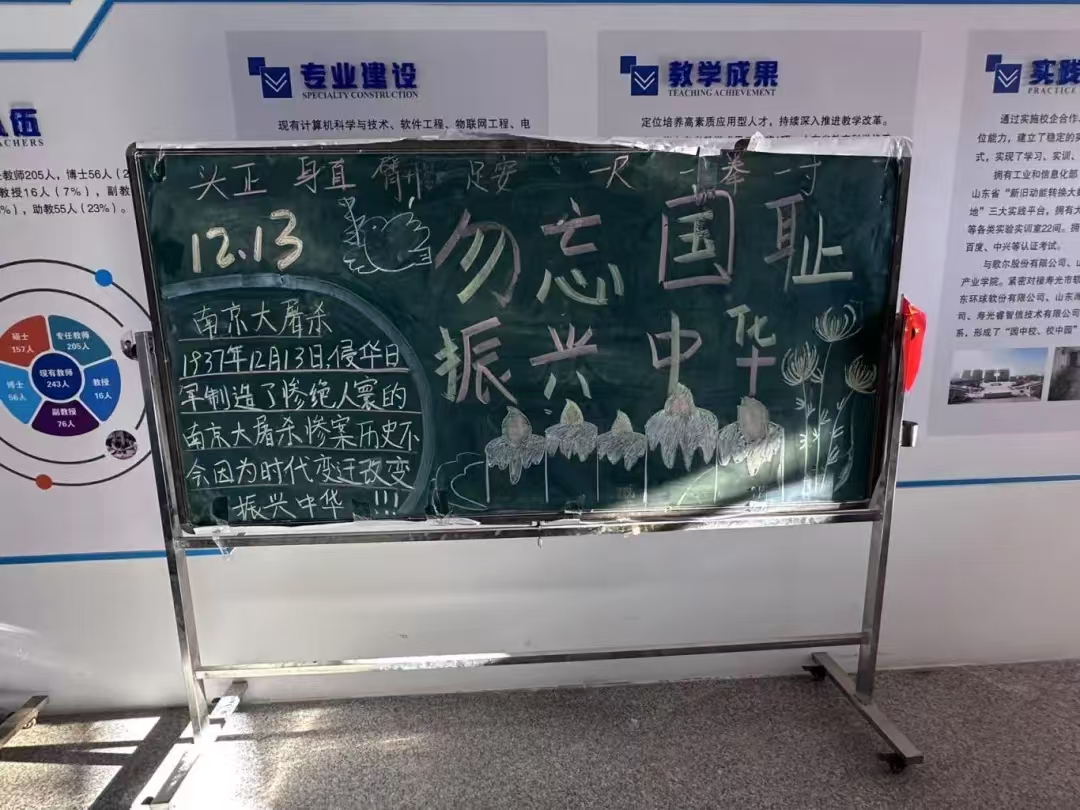 专业建设
SPECIALTY CONSTRUCTION
现有计算机科学与技术、软件工程、物联网工程、电
教学成果
TEACHING ACHIEVEMENT
定位培养高素质应用型人才，持续深入推进教学改革。
实践
PRACTICE
通过实施校企合作、
位能力，建立了稳定的实
式，实现了学习、实训、
拥有工业和信息化部
山东省“新旧动能转换大
地”三大实践平台，拥有大
等各类实验实训室22间。拥
百度、中兴等认证考试。
与歌尔股份有限公司、山
产业学院。紧密对接寿光市软
东环球软份有限公司、山东潍
司、寿光睿智信技术有限公司
系，形成了“园中校、校中园”
伍
ACHERS
教师205人，博士56人（2
教授16人（7%），副教
），助教55人（23%）。
硕士
157人
专任教师
205人
现有教师
243人
博士
56人
教授
16人
副教授
76人
头正 身直 臂开 足安 一尺 一拳 一寸
12.13
勿忘国耻
振兴中华
南京大屠杀
1937年12月13日,侵华日
军制造了惨绝人寰的
南京大屠杀惨案历史不
会因为时代变迁改变
振兴中华 !!!